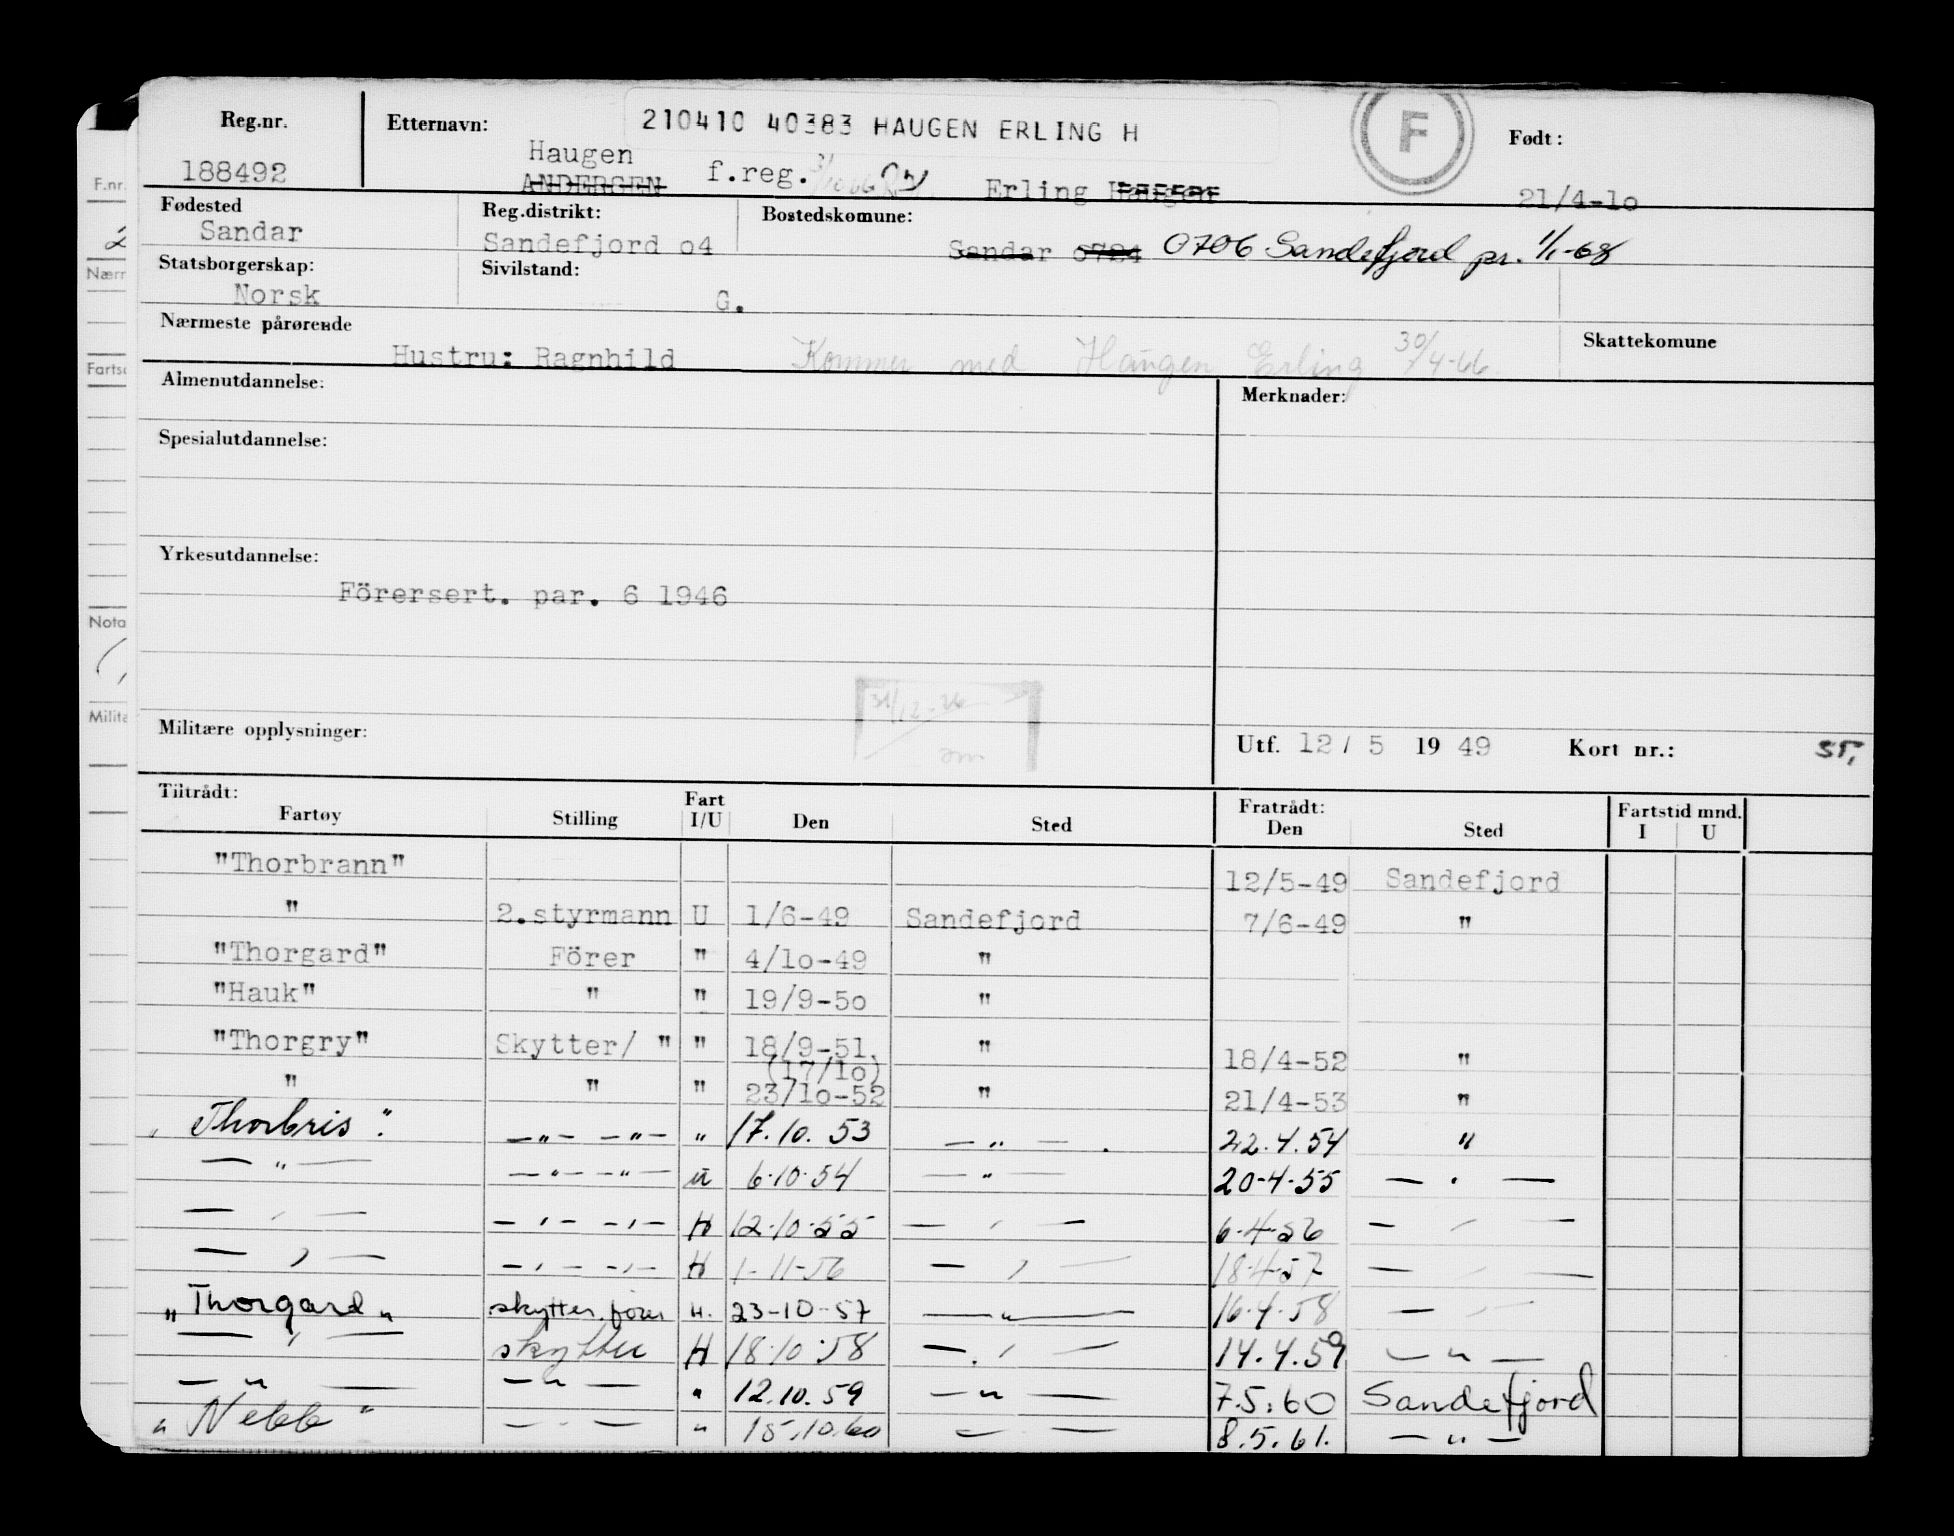 210410 40383 HAUGEN ERLING H
Reg.nr. Etternavn: F Født:
188492 Haugen
ANDERSEN f.reg. Erling Haugen 21/4-1o
Fødested Reg.distrikt: Bostedskomune:
Sandar Sandefjord o4 Sandar o724 0706 Sandefjord pr. 1/1-68
Statsborgerskap: Sivilstand:
Norsk G.
Nærmeste pårørende Skattekomune
Hustru: Ragnhild Kommer med Haugen Erling 30/4-66
Almenutdannelse: Merknader:
Spesialutdannelse:
Yrkesutdannelse:
Förersert. par. 6 1946
Militære opplysninger: Utf. 12/ 5 19 49 Kort nr.:
Tiltrådt: Fratrådt: Fartstid mnd.
Fartøy Stilling Fart I/U Den Sted Den Sted I U
"Thorbrann" 12/5-49 Sandefjord
" 2.styrmann U 1/6-49 Sandefjord 7/6-49 "
"Thorgard" Förer " 4/1o-49 "
"Hauk" " " 19/9-5o "
"Thorgry" Skytter/ " " 18/9-51. " 18/4-52 "
(17/1o)
" " " 23/1o-52 " 21/4-53 "
"Thorbris". —"— —"— " 17.10.53 —"— . 22.4.54 "
—"— —"— —"— U 6.10.54 —"— 20-4-55 —"—
—"— —"— —"— H 12-10-55 —"— 6-4-56 —"—
—"— —"— —"— H 1-11-56 —"— 18-4-57 —"—
"Thorgard" skytter, fører H. 23-10-57 —"— 16-4-58 —"—
—"— skytter H 18.10.58 —"— 14.4.59 —"—
—"— —"— " 12.10.59 —"— 7.5.60 Sandefjord
"Nebb" —"— " 15.10.60 —"— 8.5.61. —"—
F.nr.
Nærr
Fartsc
Nota
Milita